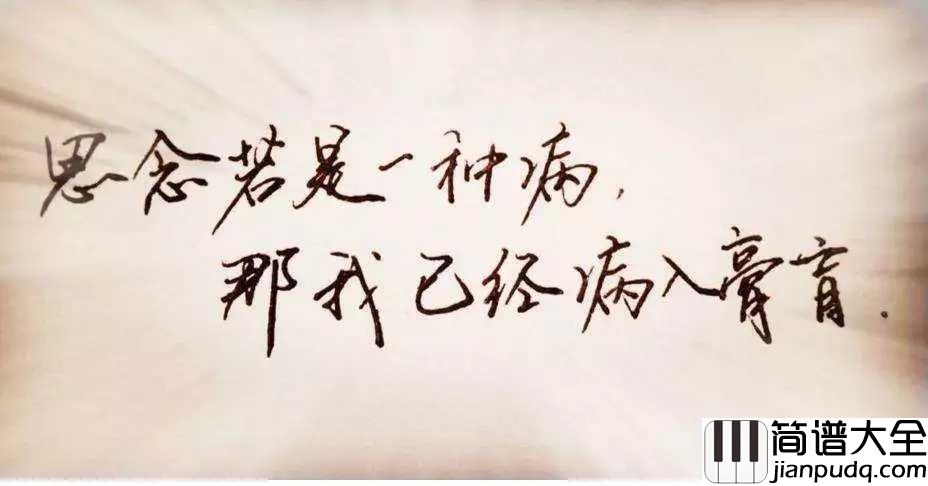 思念若是一种病,
那我已经病入膏肓.
简谱大全
jianpudq.com